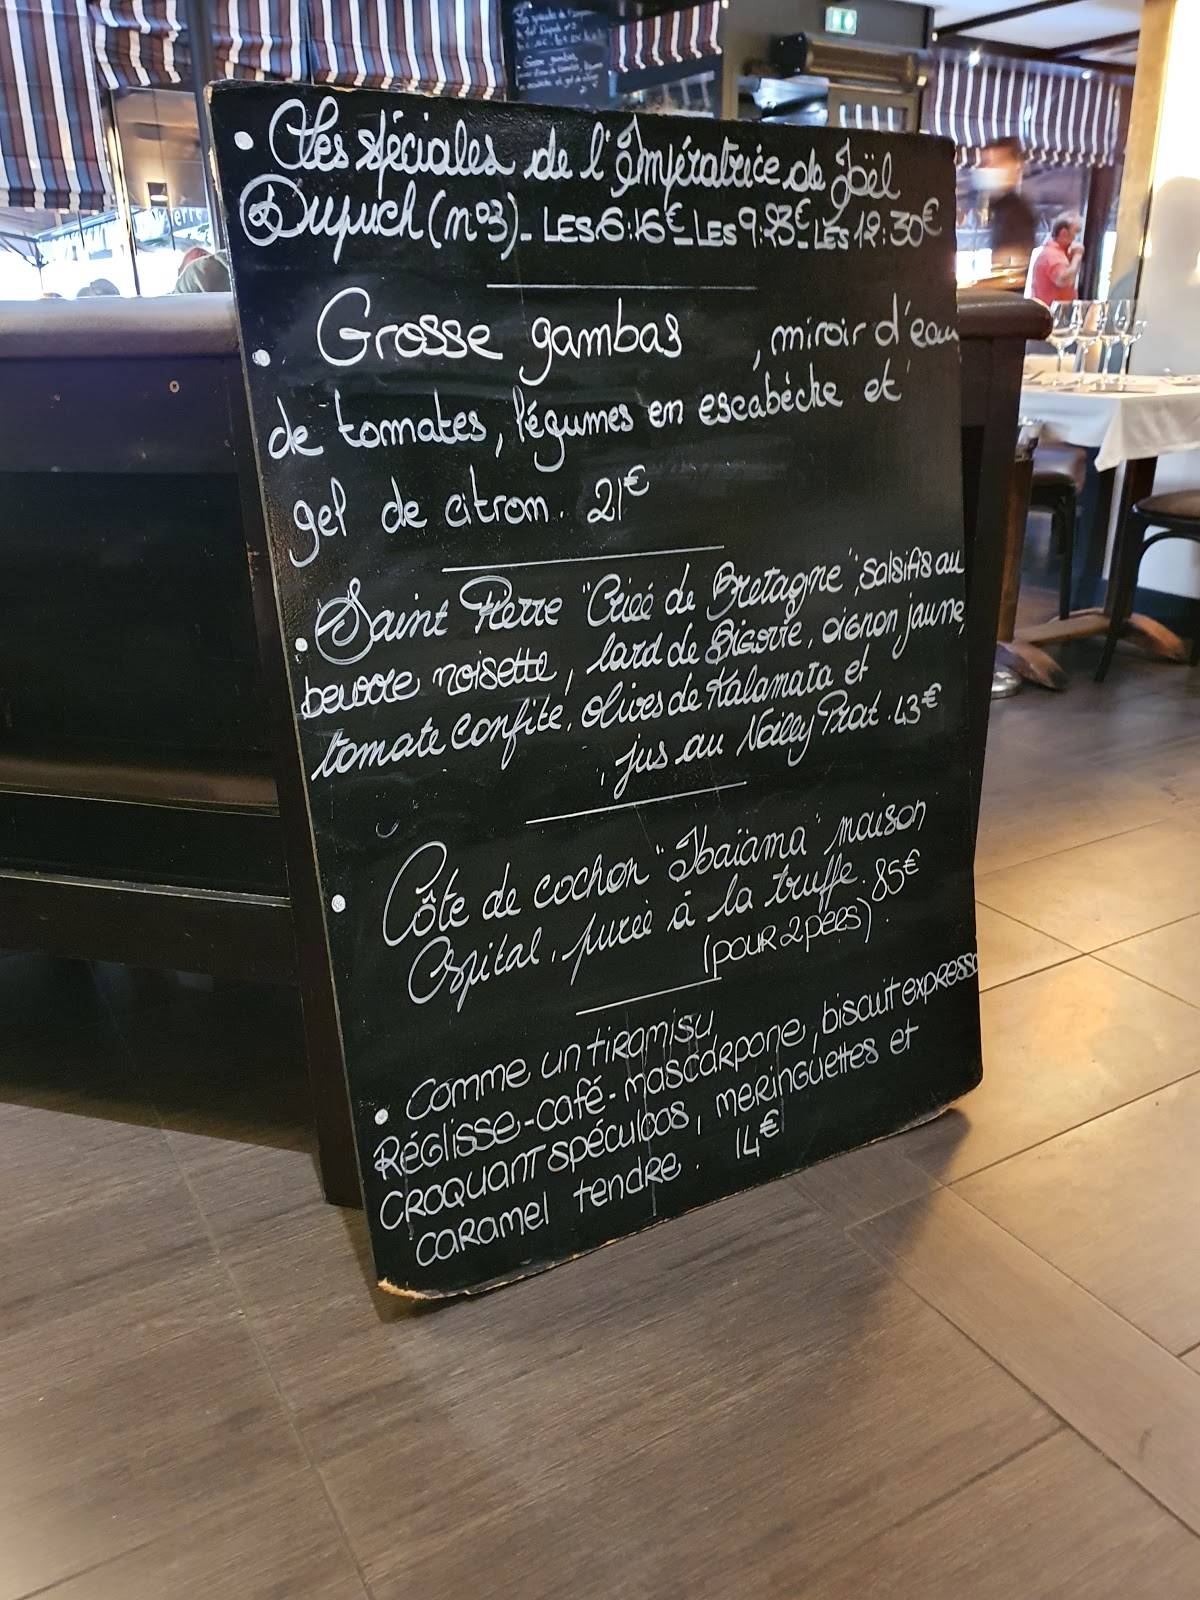 • Les spéciales de l'Impératrice de Joël
Dupuch (n°3)_ LES 6:16€_LES 9:23€_LES 12:30€
• Grosse gambas , miroir d'eau
de tomates, légumes en escabèche et
gel de citron. 21€
• Saint Pierre "Criée de Bretagne", salsifis au
beurre noisette, lard de Bigorre, oignon jaune,
tomate confite, olives de Kalamata et
, jus au Noilly Prat. 43€
• Côte de cochon "Ibaïama" maison
Ospital, purée à la truffe. 85€
(pour 2 pers).
• Comme un tiramisu
Réglisse-café-mascarpone, biscuit expresso
croquant spéculoos, meringuettes et
caramel tendre. 14€